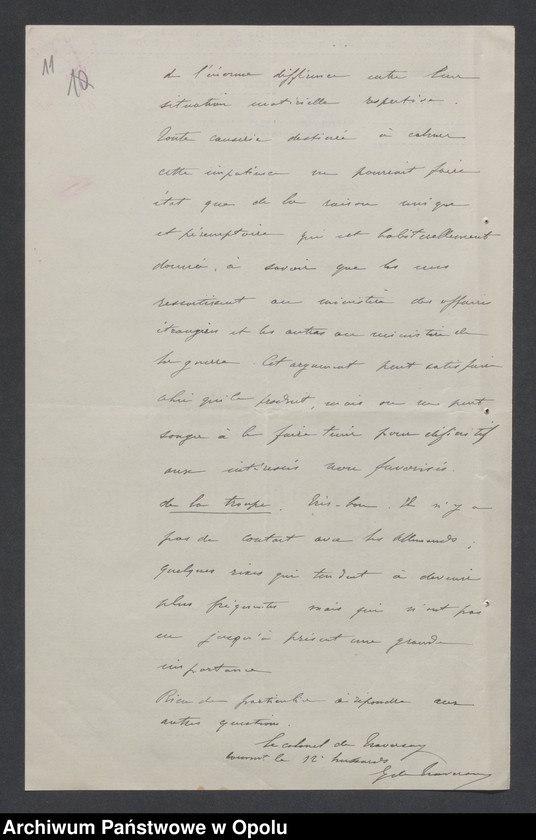 11
12
de l'énorme différence entre leur
situation matérielle respective.
Toute causerie destinée à calmer
cette impatience ne pourrait faire
état que de la raison unique
et péremptoire qui est habituellement
donnée, à savoir que les uns
ressortissent au ministère des affaires
étrangères et les autres au ministère de
la guerre. Cet argument peut satisfaire
celui qui le produit, mais on ne peut
songer à le faire tenir pour définitif
aux intéressés non favorisés.
de la troupe. Très-bon. Il n'y a
pas de contact avec les Allemands;
quelques rixes qui tendent à devenir
plus fréquentes mais qui n'ont pas
eu jusqu'à présent une grande
importance
Rien de particulier à répondre aux
autres questions.
Le colonel de Traversay
commt le 12e hussards
G de Traversay
Archiwum Państwowe w Opolu